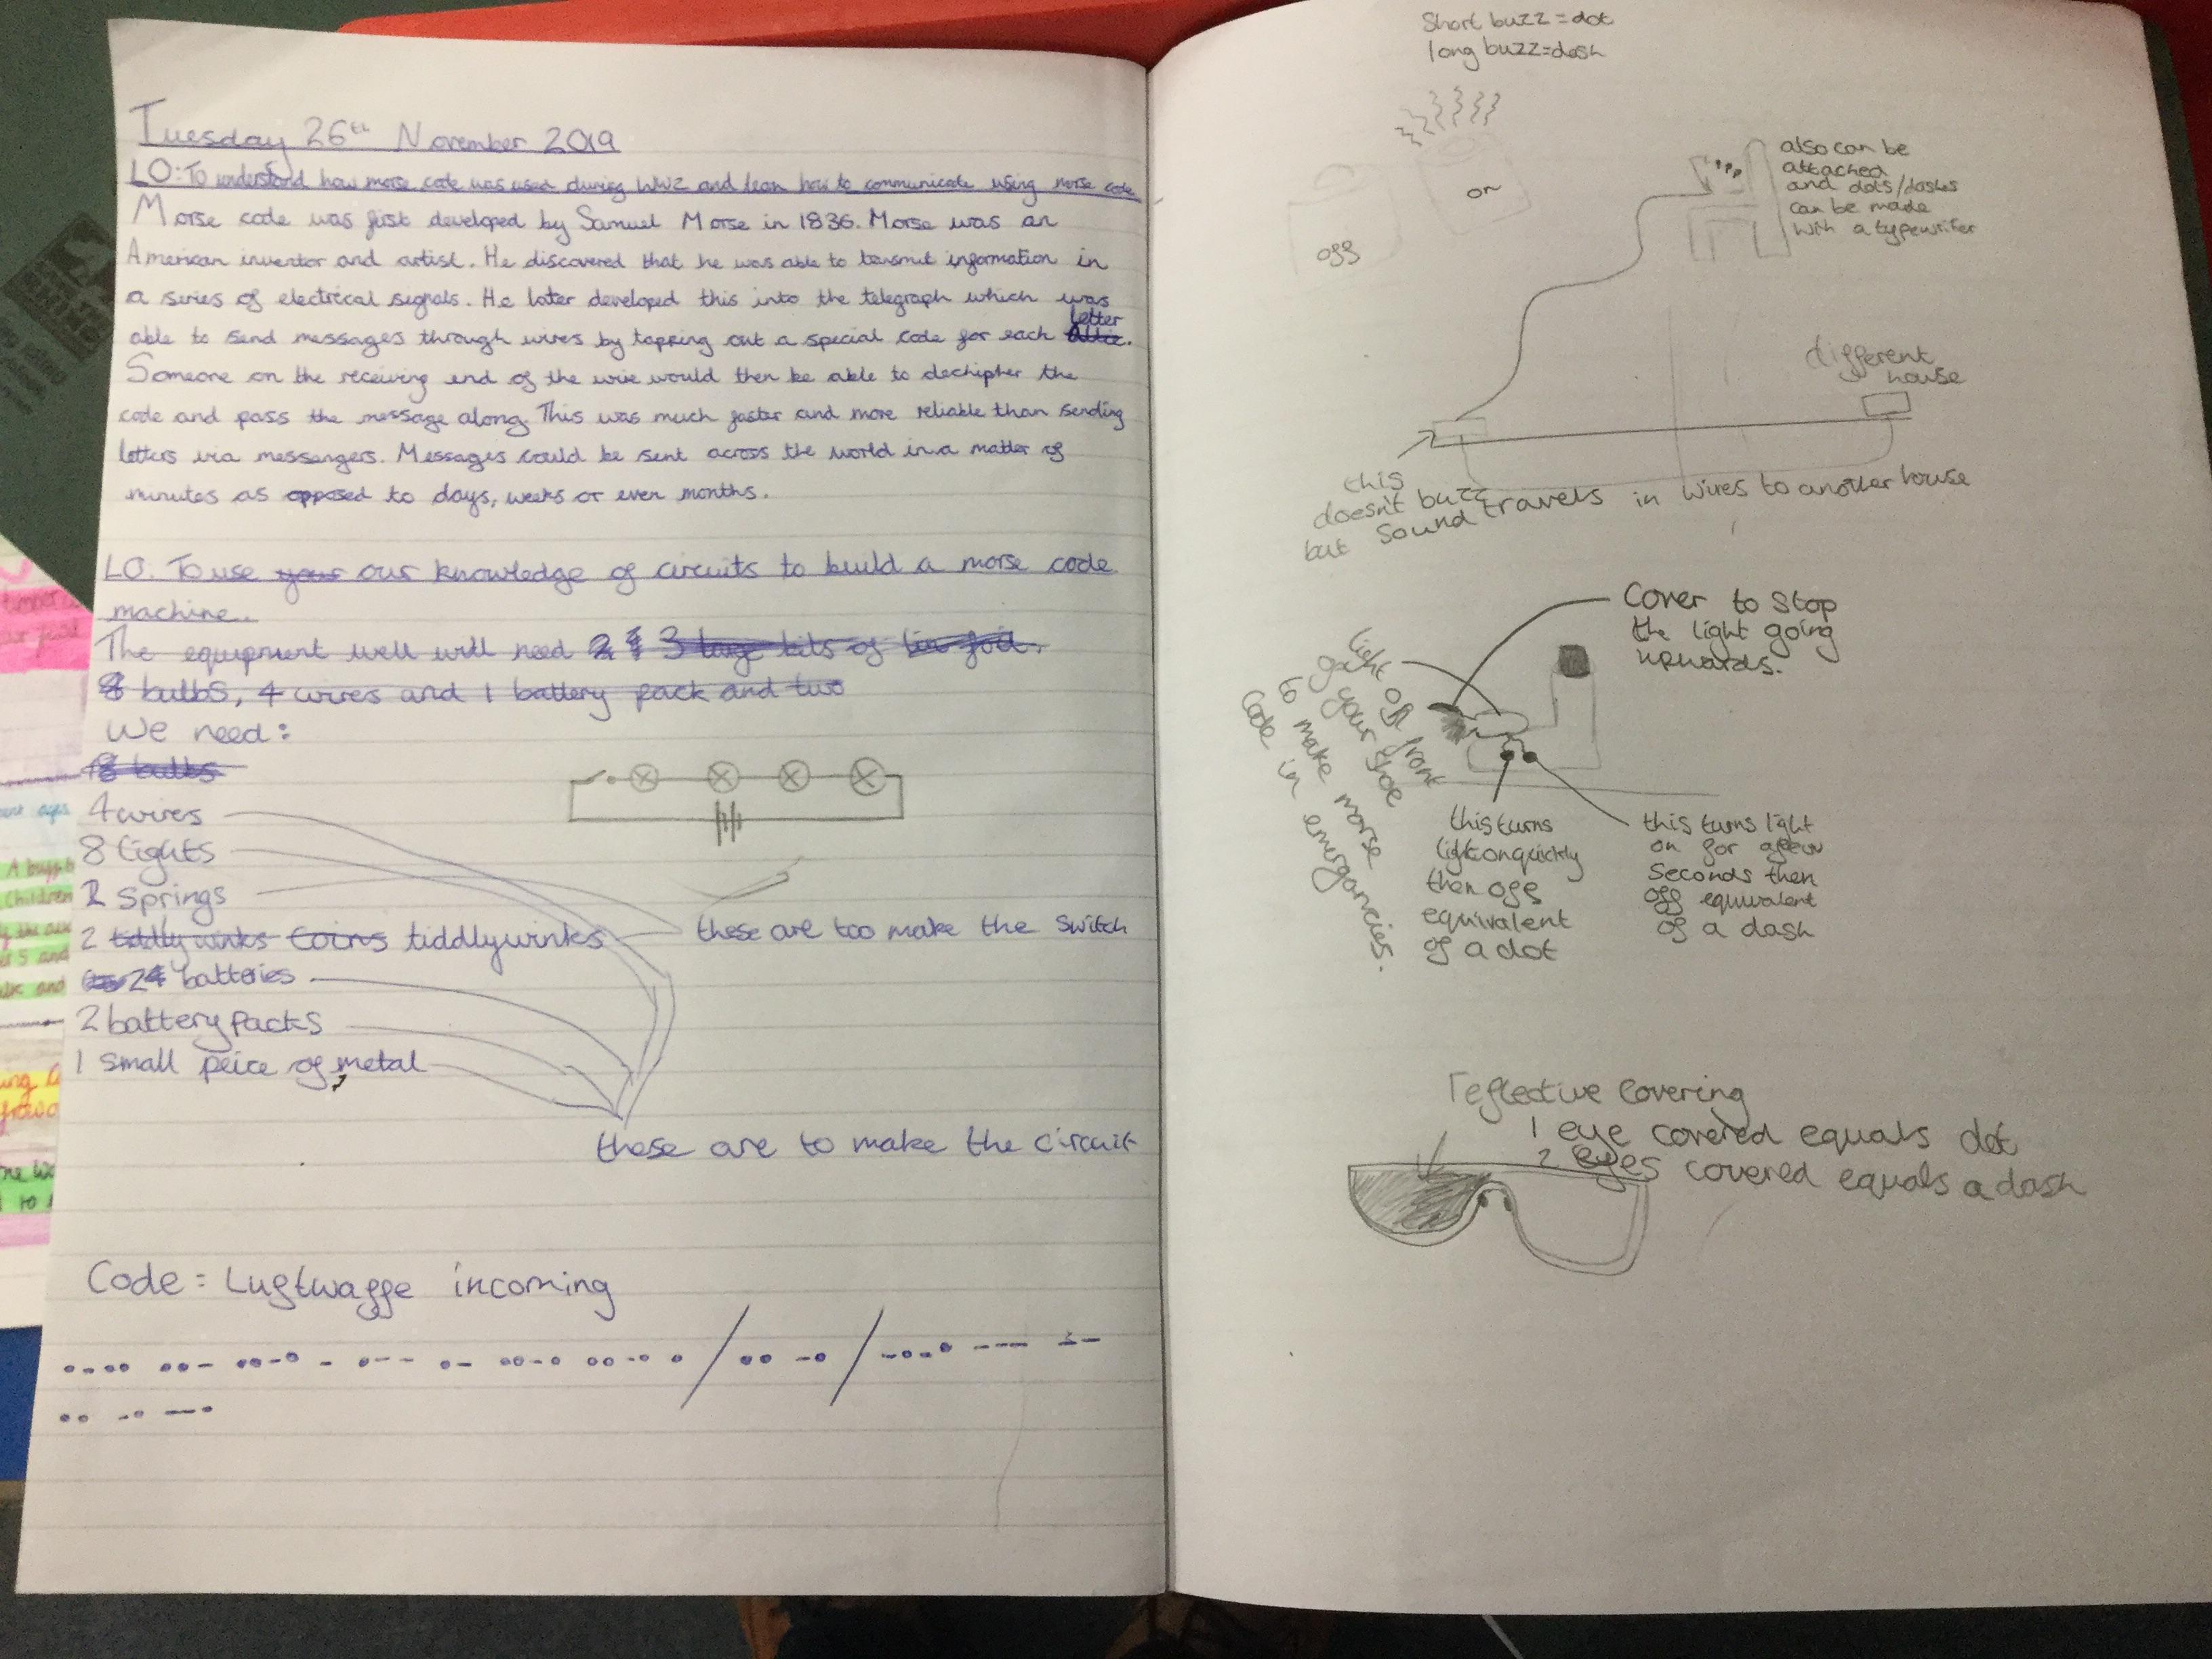 Tuesday 26th November 2019
LO: To understand how morse code was used during WW2 and learn how to communicate using morse code
Morse code was first developed by Samuel Morse in 1836. Morse was an
American inventor and artist. He discovered that he was able to transmit information in
a series of electrical signals. He later developed this into the telegraph which was
able to send messages through wires by tapping out a special code for each letter.
Someone on the receiving end of the wire would then be able to dechipher the
code and pass the message along. This was much faster and more reliable than sending
letters via messangers. Messages could be sent across the world in a matter of
minutes as opposed to days, weeks or even months.
LO: To use your our knowledge of circuits to build a morse code
machine.
The equipment well will need 2 3 large bits of tin foil.
8 bulbs, 4 wires and 1 battery pack and two
We need:
8 bulbs
4 wires
8 lights
2 springs
2 tiddlywinks coins tiddlywinks
these are too make the switch
24 batteries
2 battery packs
1 small peice of metal
these are to make the circuit
Code: Luftwaffe incoming
.-.. ..- ..-. - .-- .- ..-. ..-. . / .. -. / -.-. --- --
.. -. --.
Short buzz = dot
long buzz = dash
off
on
also can be
attached
and dots/dashes
can be made
with a typewriter
different
house
this
doesn't buzz
but sound travels in wires to another house
Cover to stop
the light going
upwards.
light off front
of your shoe
to make morse
code in emergancies.
this turns
light on quickly
then off
equivalent
of a dot
this turns light
on for a few
seconds then
off equivalent
of a dash
reflective covering
1 eye covered equals dot
2 eyes covered equals a dash